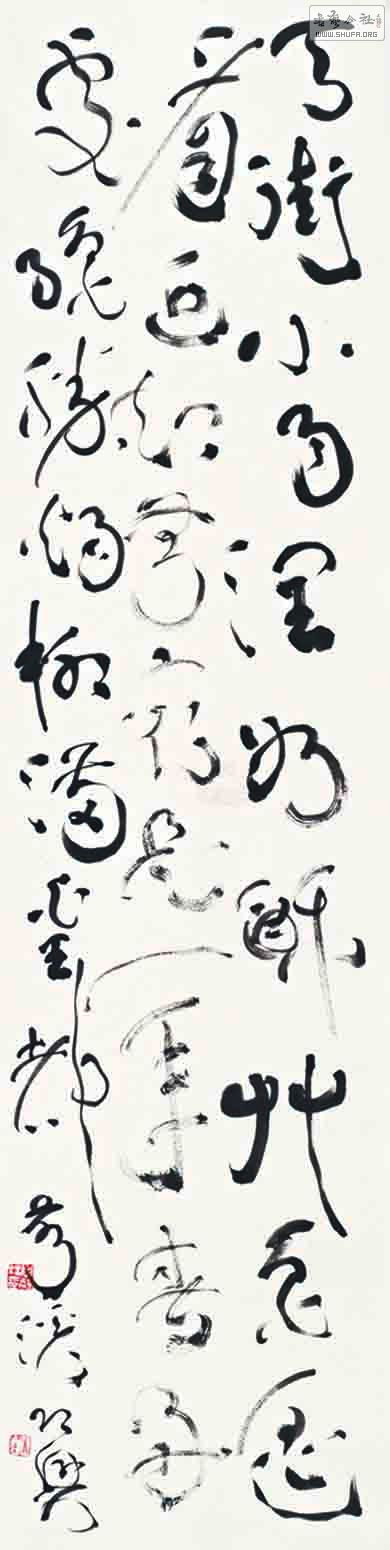 书法公社
WWW.SHUFA.ORG
天街小雨潤如酥草色遥
看近却無最是一年春好
處絕勝煙柳滿皇都